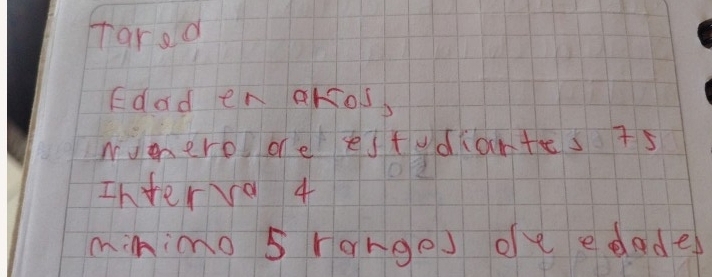 Tarea
Edad en años,
Numero de estudiantes 75
Interva 4
minimo 5 rangos de edades